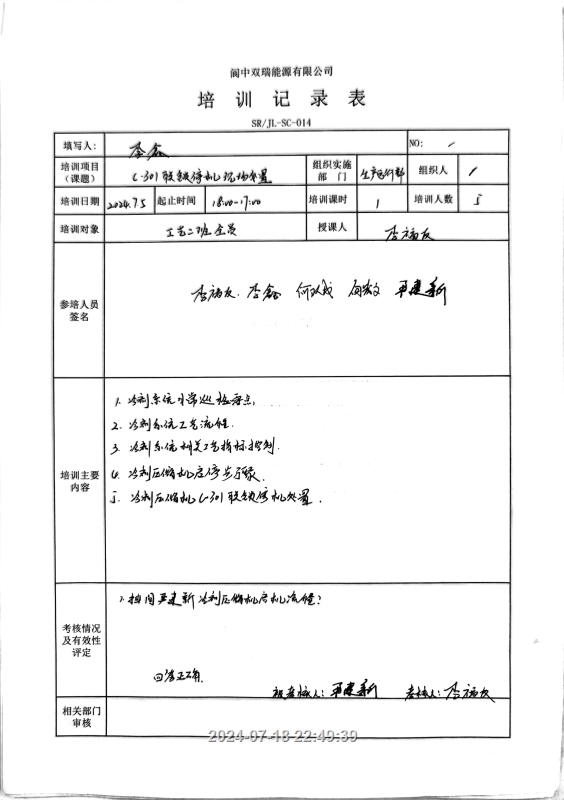 阆中双瑞能源有限公司
培训记录表
SR/JL-SC-014
填写人: 李鑫 NO: /
培训项目（课题） C-301联锁停机现场处置 组织实施部门 生产运行部 组织人 /
培训日期 2024.7.5 起止时间 16:00-17:00 培训课时 1 培训人数 5
培训对象 工艺二班全员 授课人 李福友
参培人员签名 李福友. 李鑫 何 严建新
培训主要内容
1. 冷剂系统日常巡检要点,
2. 冷剂系统工艺流程.
3. 冷剂系统相关工艺指标控制.
4. 冷剂压缩机启停步骤.
5. 冷剂压缩机C-301联锁停机处置.
考核情况及有效性评定
1. 提问严建新冷剂压缩机启机流程?
回答正确.
被考核人: 严建新 考核人: 李福友
相关部门审核
2024-07-18 22:49:39